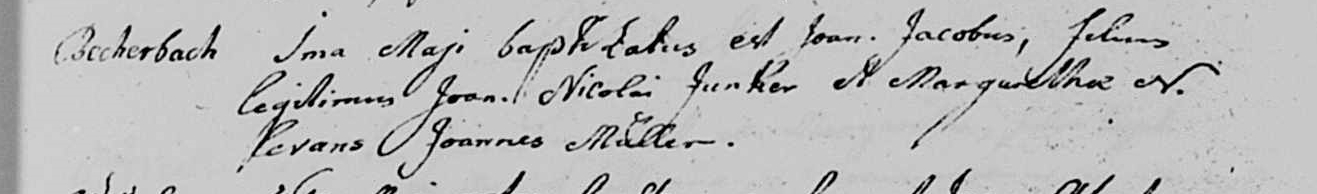 Becherbach 1ma Maji baptizatus est Joan. Jacobus, filius
legitimus Joan. Nicolai Junker et Margarethæ N.
levans Joannes Müller.